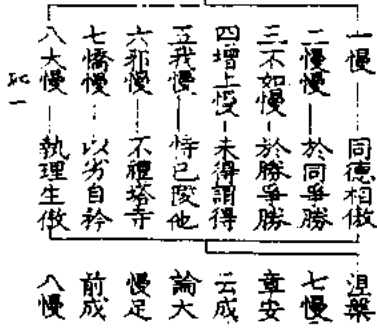 一慢 — 同德相傲
二慢慢 — 於同爭勝
三不如慢 — 於勝爭勝
四增上慢 — 未得謂得
五我慢 — 恃己陵他
六邪慢 — 不禮塔寺
七憍慢 — 以劣自矜
八大慢 — 執理生傲
涅槃
七慢
章安
云成
論大
慢足
前成
八慢